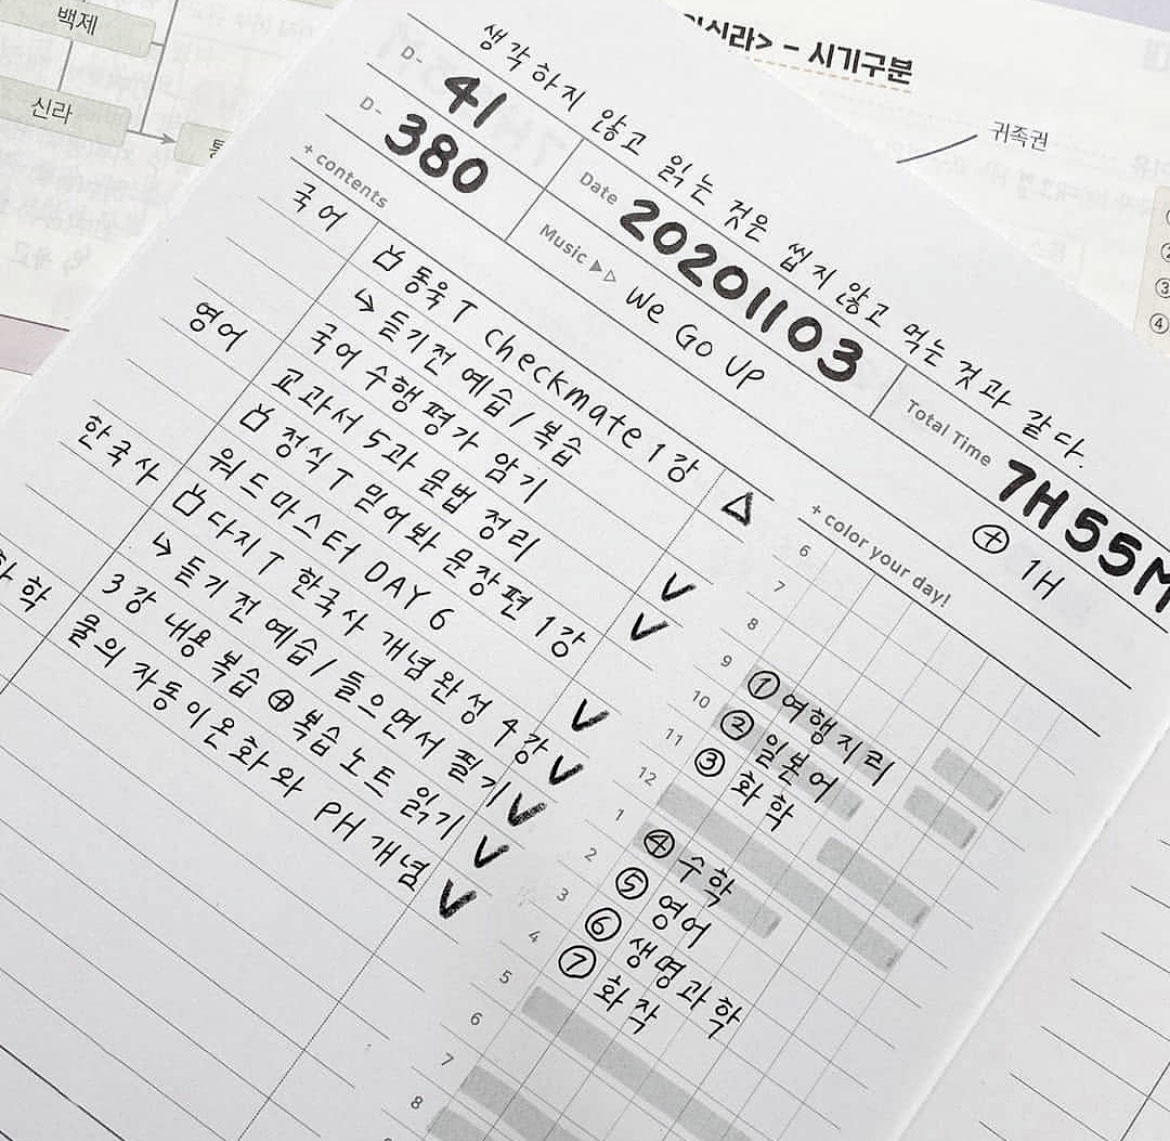 백제
신라
신라> - 시기구분
귀족권
생각하지 않고 읽는 것은 씹지 않고 먹는 것과 같다.
D- 41
D- 380
Date 20201103
Music ▶▷ We Go UP
Total Time 7H 55M
⊕ 1H
+ contents
국어
동욱T Checkmate 1강 △
↳ 듣기전 예습/복습
국어 수행평가 암기
교과서 5과 문법 정리 V
영어
정식T 믿어봐 문장편 1강 V
워드마스터 DAY 6
한국사
다지T 한국사 개념완성 4강 V
↳ 듣기 전 예습/들으면서 필기 V
3강 내용 복습 ⊕ 복습 노트 읽기 V
화학
물의 자동이온화와 PH 개념 V
+ color your day!
6
7
8
9 ① 여행지리
10 ② 일본어
11 ③ 화학
12
1 ④ 수학
2 ⑤ 영어
3 ⑥ 생명과학
4 ⑦ 화작
5
6
7
8
②
③
④